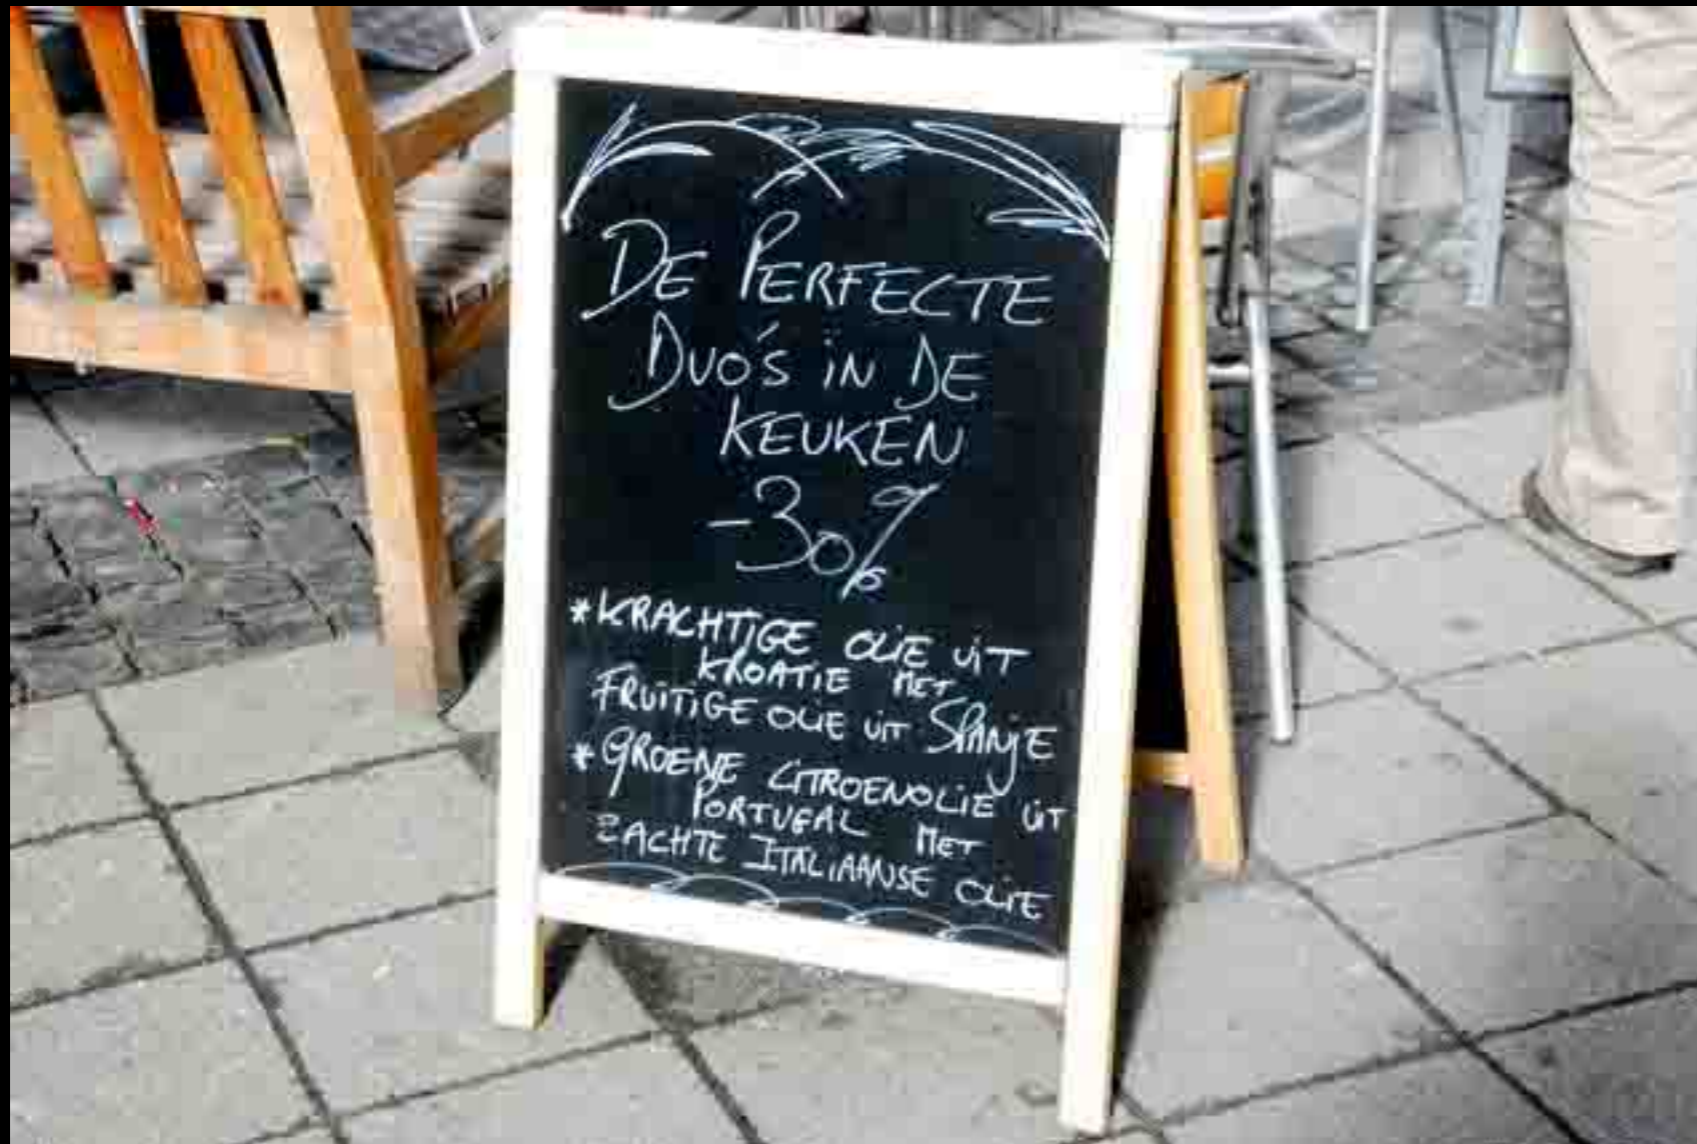 DE PERFECTE
DUO'S IN DE
KEUKEN
-30%
*KRACHTIGE OLIE UIT
KROATIE MET
FRUITIGE OLIE UIT SPANJE
*GROENE CITROENOLIE UIT
PORTUGAL MET
ZACHTE ITALIAANSE OLIE